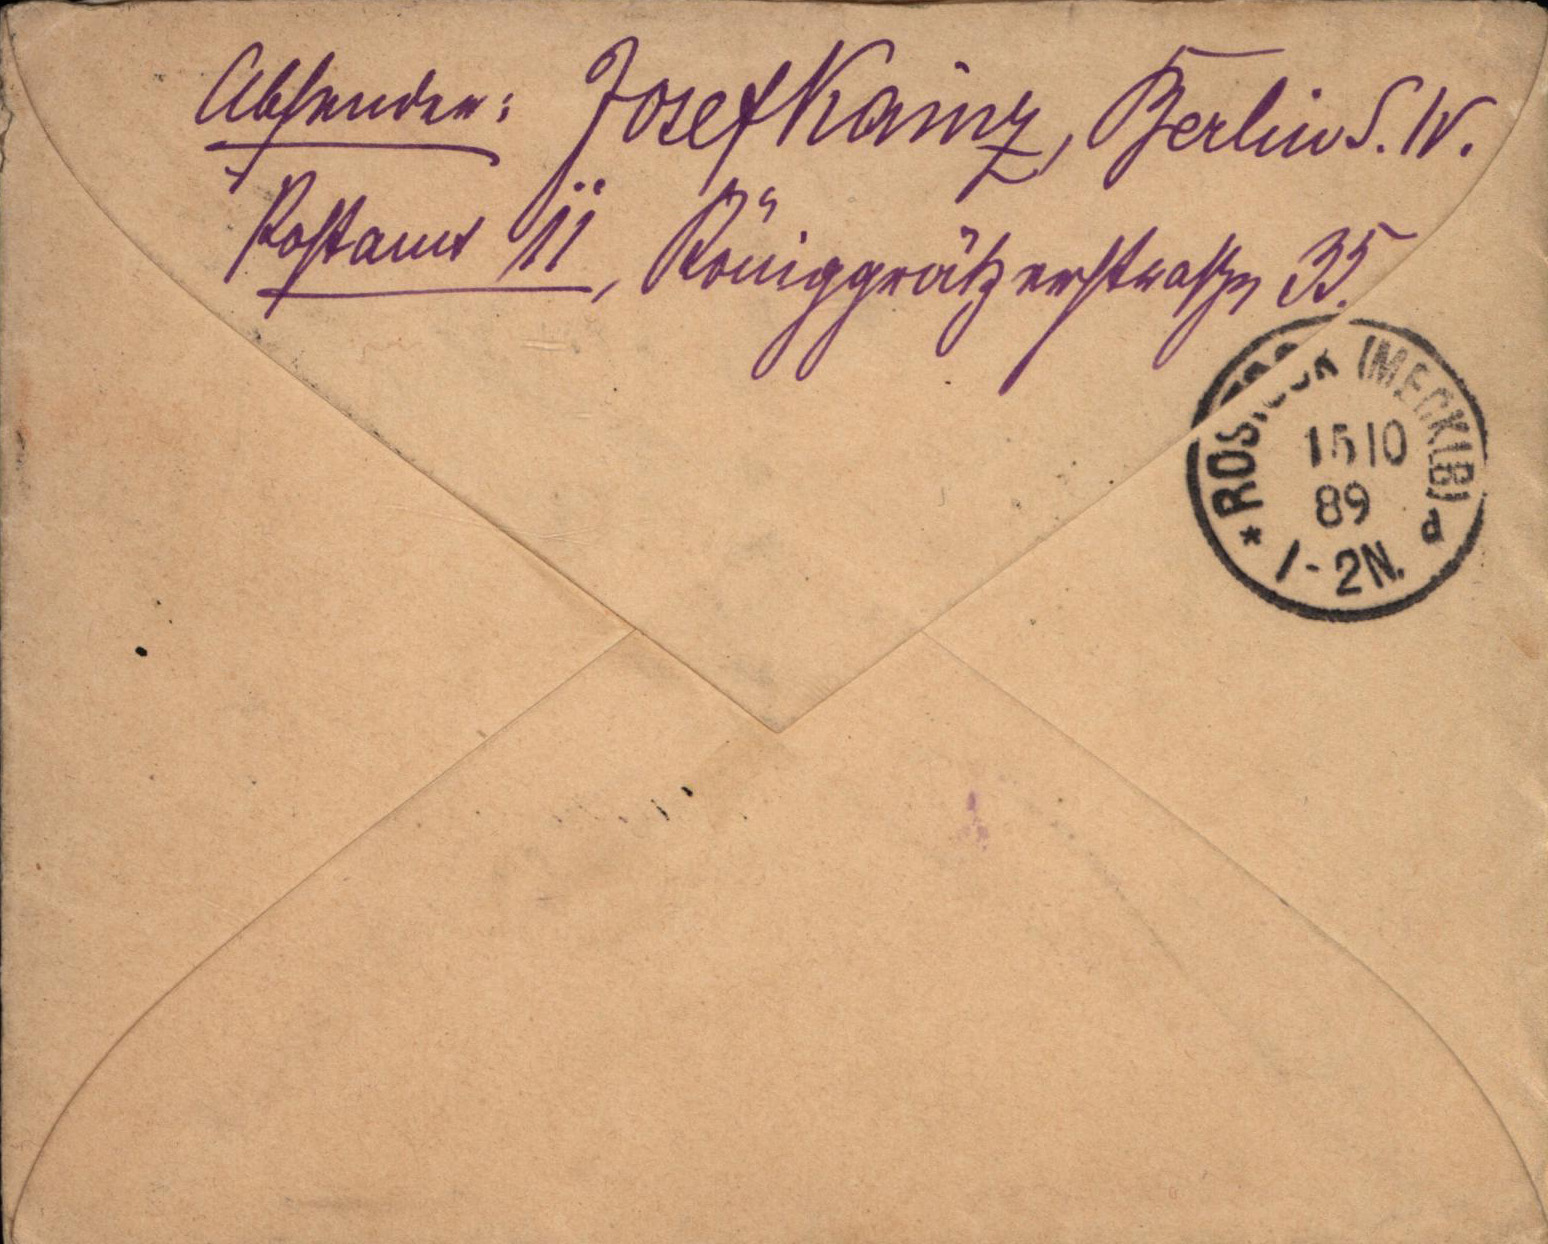 Absender: Josef Kainz, Berlin S. W.
Postamt 11, Königgrätzerstraße 35.
ROSTOCK (MECKLB)
15 10
89
* 1-2N. d